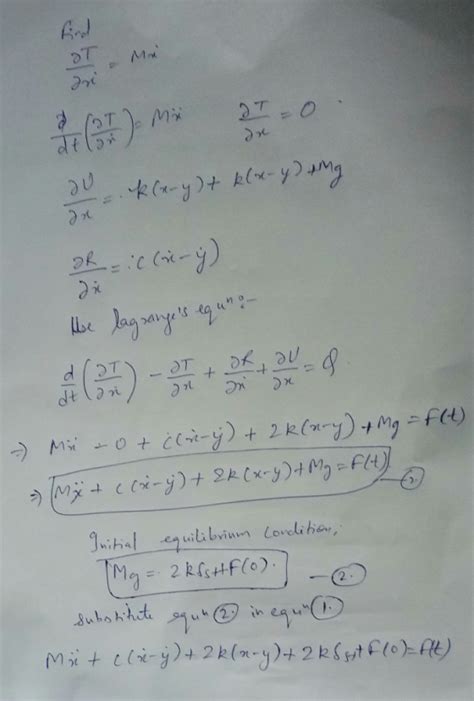 Find
∂T/∂ẋ = Mẋ
d/dt(∂T/∂ẋ) = Mẍ ∂T/∂x = 0
∂U/∂x = k(x-y) + k(x-y) + Mg
∂R/∂ẋ = c(ẋ-ẏ)
Use lagrange's equⁿ:-
d/dt(∂T/∂ẋ) - ∂T/∂x + ∂R/∂ẋ + ∂U/∂x = Q
⇒ Mẍ - 0 + c(ẋ-ẏ) + 2k(x-y) + Mg = f(t)
⇒ Mẍ + c(ẋ-ẏ) + 2k(x-y) + Mg = f(t) —
Initial equilibrium condition,
Mg = 2kδst + F(0). — ②
substitute equⁿ ② in equⁿ ①
Mẍ + c(ẋ-ẏ) + 2k(x-y) + 2kδst + f(0) = f(t)